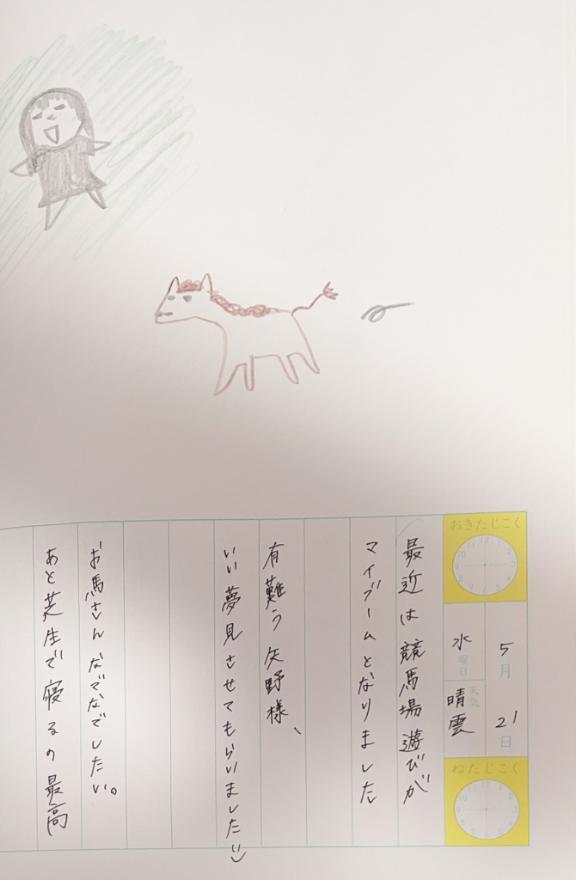 おきたじこく
5月21日
水曜日
天気 晴雲
ねたじこく
最近は競馬場遊びが
マイブームとなりました
有難う矢野様、
いい夢見させてもらいました:)
お馬さんなでなでしたい。
あと芝生で寝るの最高